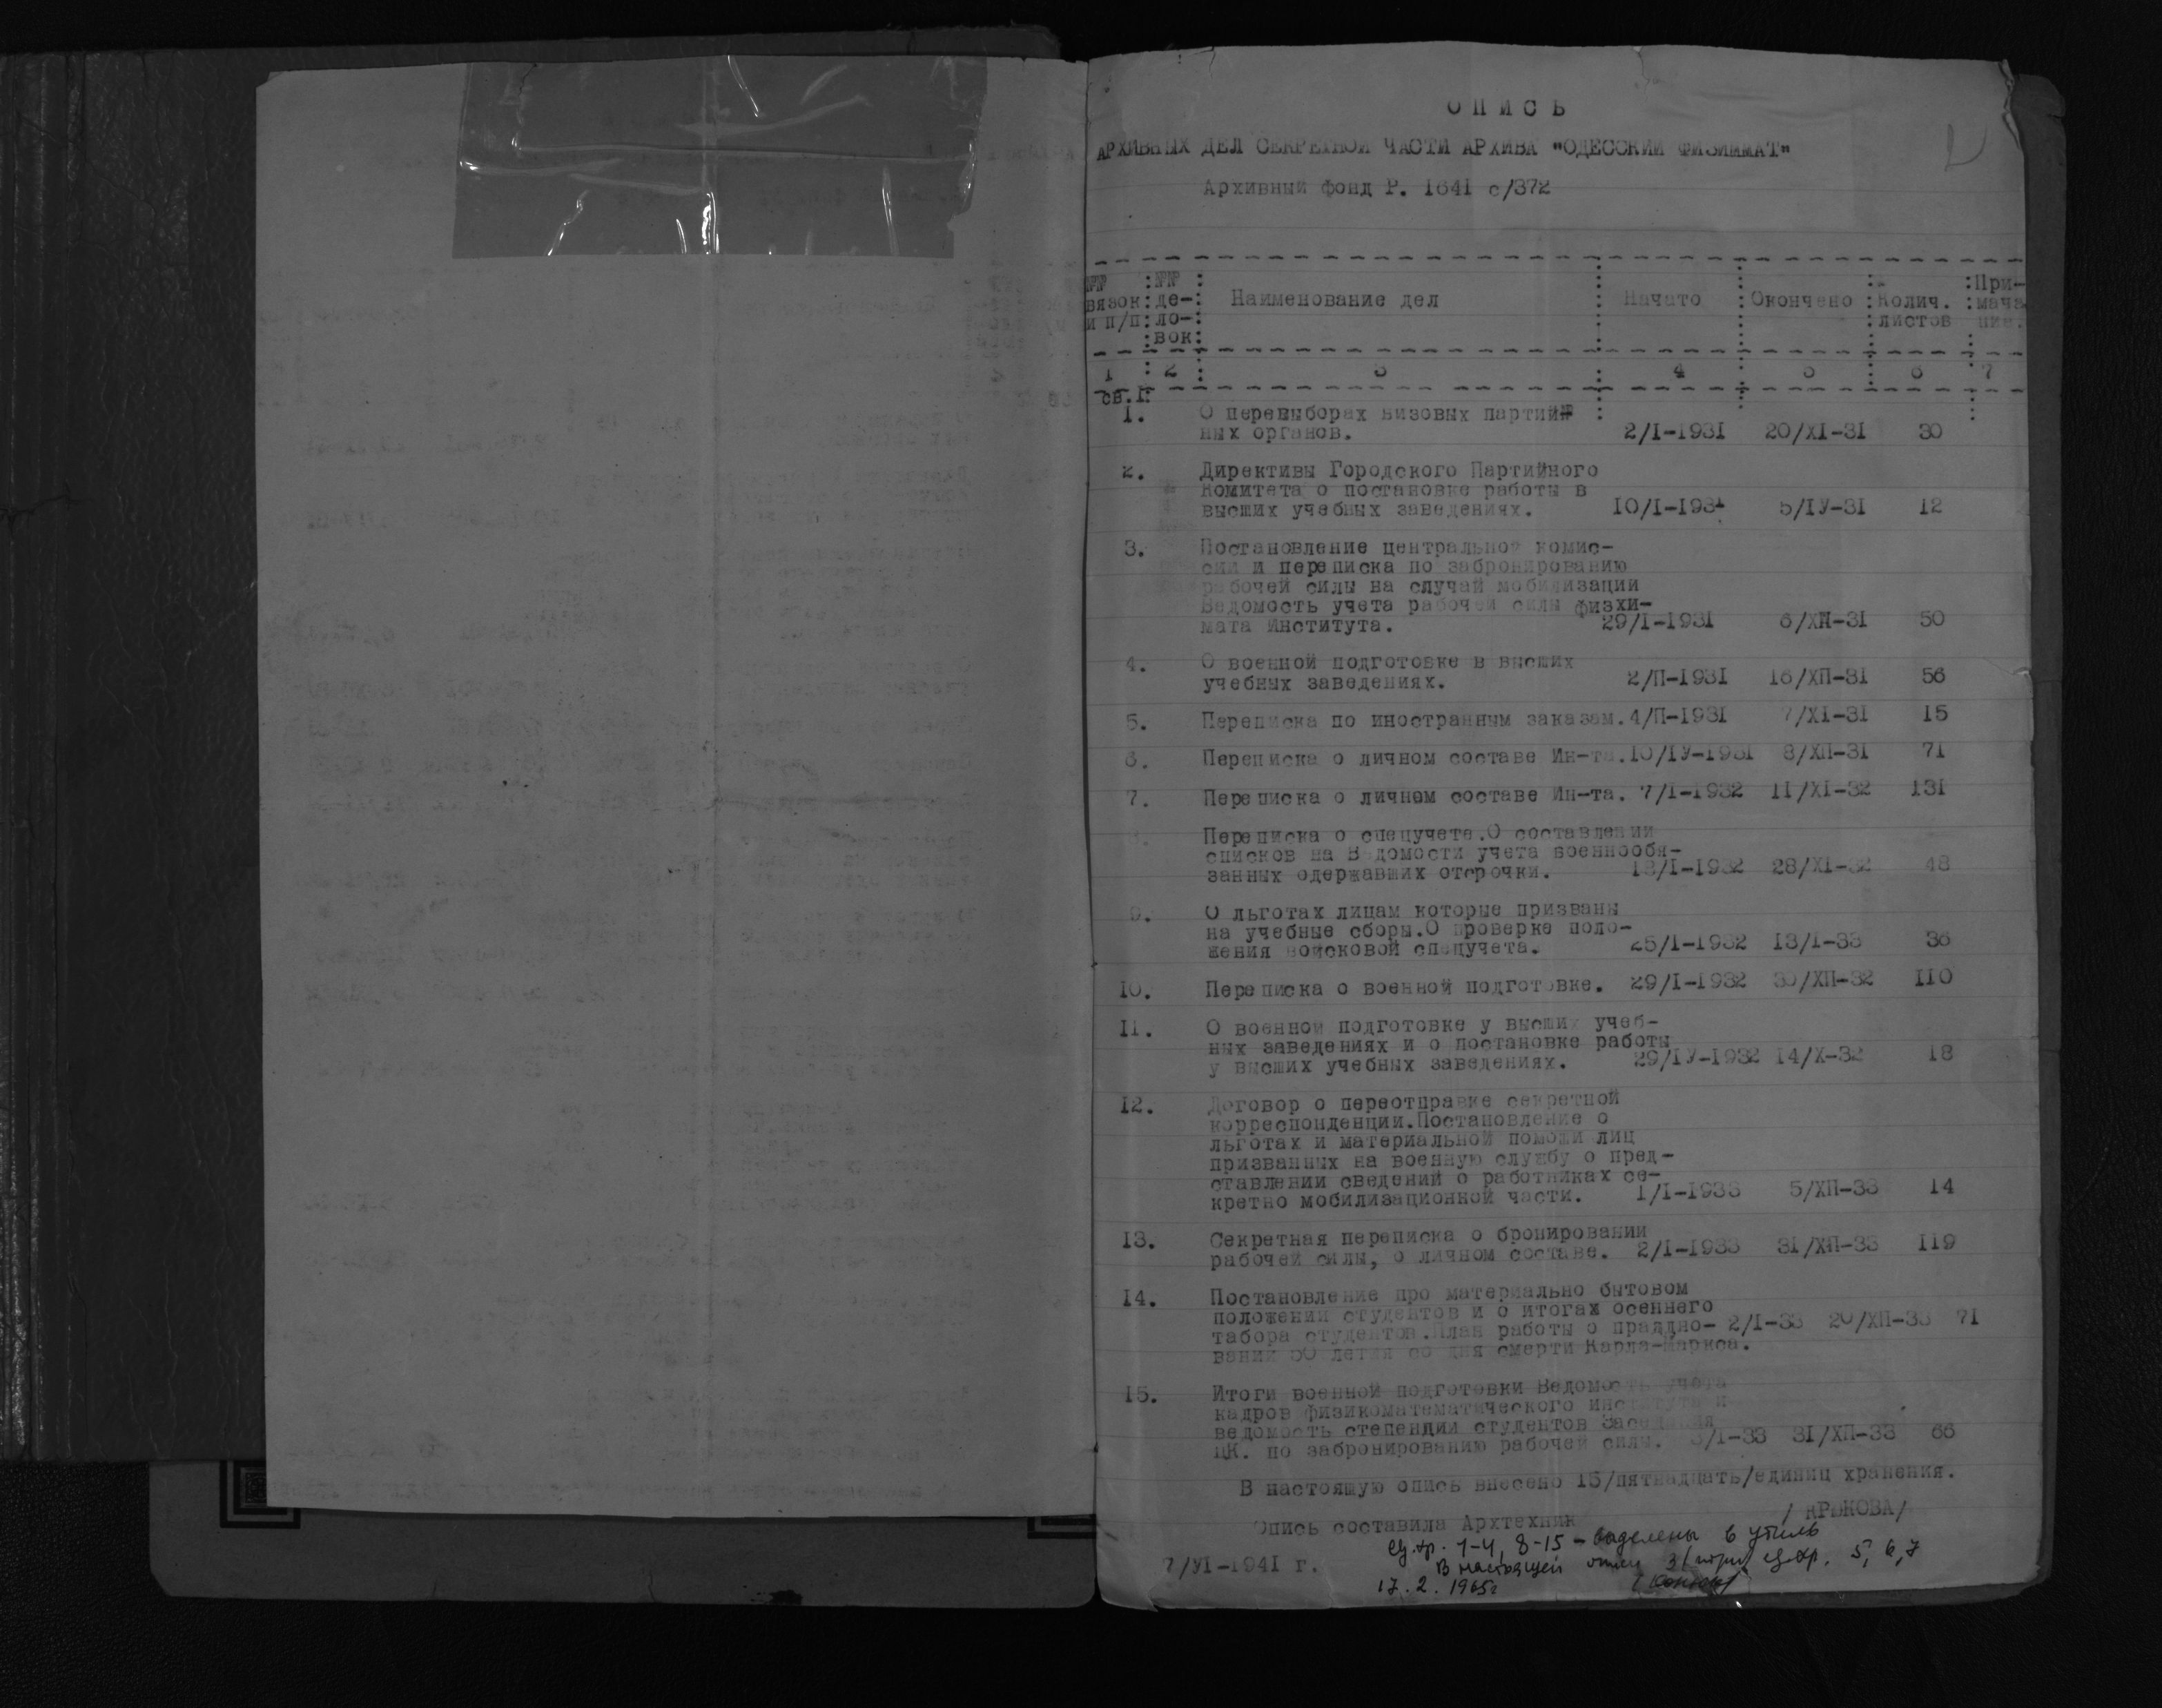 ОПИСЬ
АРХИВНЫХ ДЕЛ СЕКРЕТНОЙ ЧАСТИ АРХИВА "ОДЕССКИЙ ФИЗИММАТ"
Архивный фонд Р. 1641 с/372
№№ вязок и п/п : №№ де-ло-вок : Наименование дел : Начато : Окончено : Колич. листов : При-мача ние.
1 : 2 : 3 : 4 : 5 : 6 : 7
св.I.
I. О перевыборах низовых партий
ных органов. 2/I-1931 20/XI-31 30
2. Директивы Городского Партийного
Комитета о постановке работы в
высших учебных заведениях. 10/I-1931 5/IУ-31 12
3. Постановление центральной комис-
сии и переписка по забронированию
рабочей силы на случай мобилизации
Ведомость учета рабочей силы физхи-
мата Института. 29/I-1931 6/ХП-31 50
4. О военной подготовке в высших
учебных заведениях. 2/П-1931 16/ХП-31 56
5. Переписка по иностранным заказам. 4/П-1931 7/XI-31 15
6. Переписка о личном составе Ин-та. 10/IУ-1931 8/ХП-31 71
7. Переписка о личном составе Ин-та. 7/I-1932 11/XI-32 131
8. Переписка о спецучете.О составлении
списков на Ведомости учета военнообя-
занных одержавших отсрочки. 13/I-1932 28/XI-32 48
9. О льготах лицам которые призваны
на учебные сборы.О проверке поло-
жения войсковой спецучета. 25/I-1932 13/I-33 36
10. Переписка о военной подготовке. 29/I-1932 30/ХП-32 110
11. О военной подготовке у высших учеб-
ных заведениях и о постановке работы
у высших учебных заведениях. 29/IУ-1932 14/Х-32 18
12. Договор о переотправке секретной
корреспонденции.Постановление о
льготах и материальной помощи лиц
призванных на военную службу о пред-
ставлении сведений о работниках се-
кретно мобилизационной части. 1/I-1933 5/ХП-33 14
13. Секретная переписка о бронировании
рабочей силы, о личном составе. 2/I-1933 31/ХП-33 119
14. Постановление про материально бытовом
положении студентов и о итогах осеннего
табора студентов.План работы о праздно- 2/I-33 20/ХП-33 71
вании 50 летия со дня смерти Карла-Маркса.
15. Итоги военной подготовки Ведомость учета
кадров физикоматематического института и
ведомость степендии студентов Заседания
ЦК. по забронированию рабочей силы. 3/I-33 31/ХП-33 66
В настоящую опись внесено 15/пятнадцать/единиц хранения.
Опись составила Архтехник /КРЮКОВА/
7/УI-1941 г.
ед.хр. 1-4, 8-15 - выделены в утиль
В настоящей описи 3/три/ ед.хр. 5, 6, 7
17.2.1965г